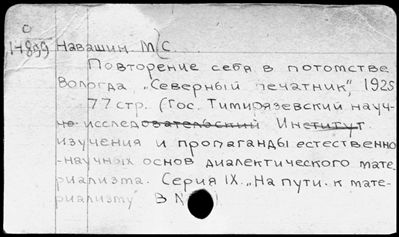 О
1-899 Навашин М.С.
Повторение себя в потомстве
Вологда, „Северный печатник", 1925
77 стр. (Гос. Тимирязевский науч-
но-исследовательский Институт
изучения и пропаганды естественно
-научных основ диалектического мате-
риализма. Серия IX. „На пути к мате-
риализму" В N